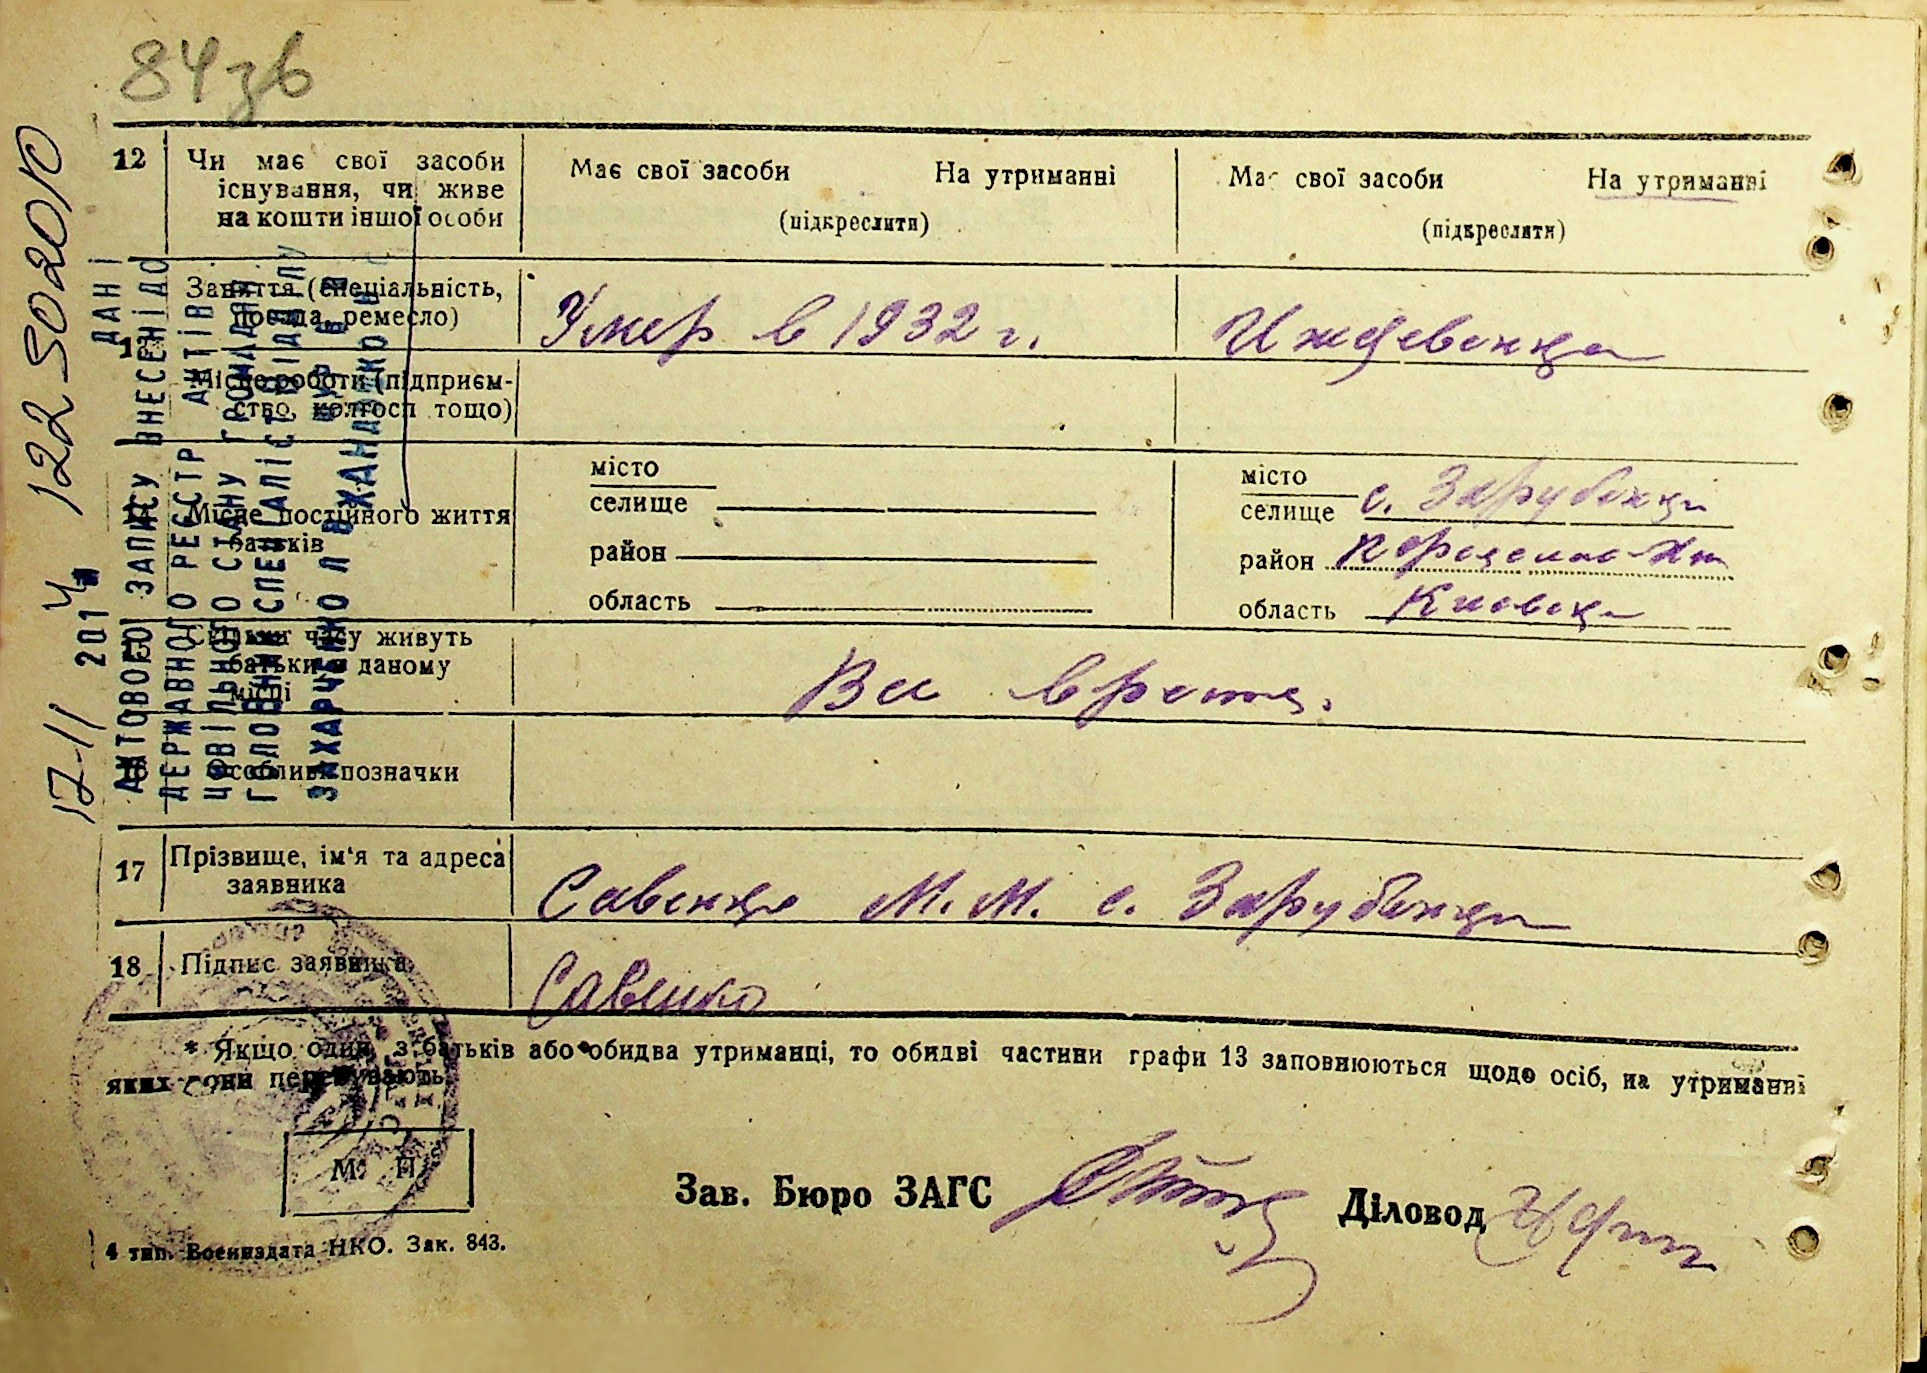 84зв
12 Чи має свої засоби існування, чи живе на кошти іншої особи
Має свої засоби На утриманні
(підкреслити)
Має свої засоби На утриманні
(підкреслити)
13 Заняття (спеціальність, посада, ремесло)
Умер в 1932 г.
Иждевенка
Місце роботи (підприємство, колгосп тощо)
Місце постійного життя батьків
місто
селище
район
область
місто
селище с. Зарубенци
район
область Киевска
Скільки часу живуть батьки в даному місці
Все время.
16 Особливі позначки
17 Прізвище, ім'я та адреса заявника
Савенко М. М. с. Зарубенци
18 Підпис заявника
Савенко
* Якщо один з батьків або обидва утриманці, то обидві частини графи 13 заповнюються щодо осіб, на утриманні
яких вони перебувають.
М. П.
Зав. Бюро ЗАГС
Діловод
4 тип. Воениздата НКО. Зак. 843.
ДАНІ
АКТОВОГО ЗАПИСУ ВНЕСЕНІ ДО
ДЕРЖАВНОГО РЕЄСТР АКТІВ
ЦИВІЛЬНОГО СТАНУ ГРОМАДЯН
ГОЛОВНИЙ СПЕЦІАЛІСТ ВІДДІЛУ
ЗАХАРЧЕНКО Л В
17-11 2014 1225020